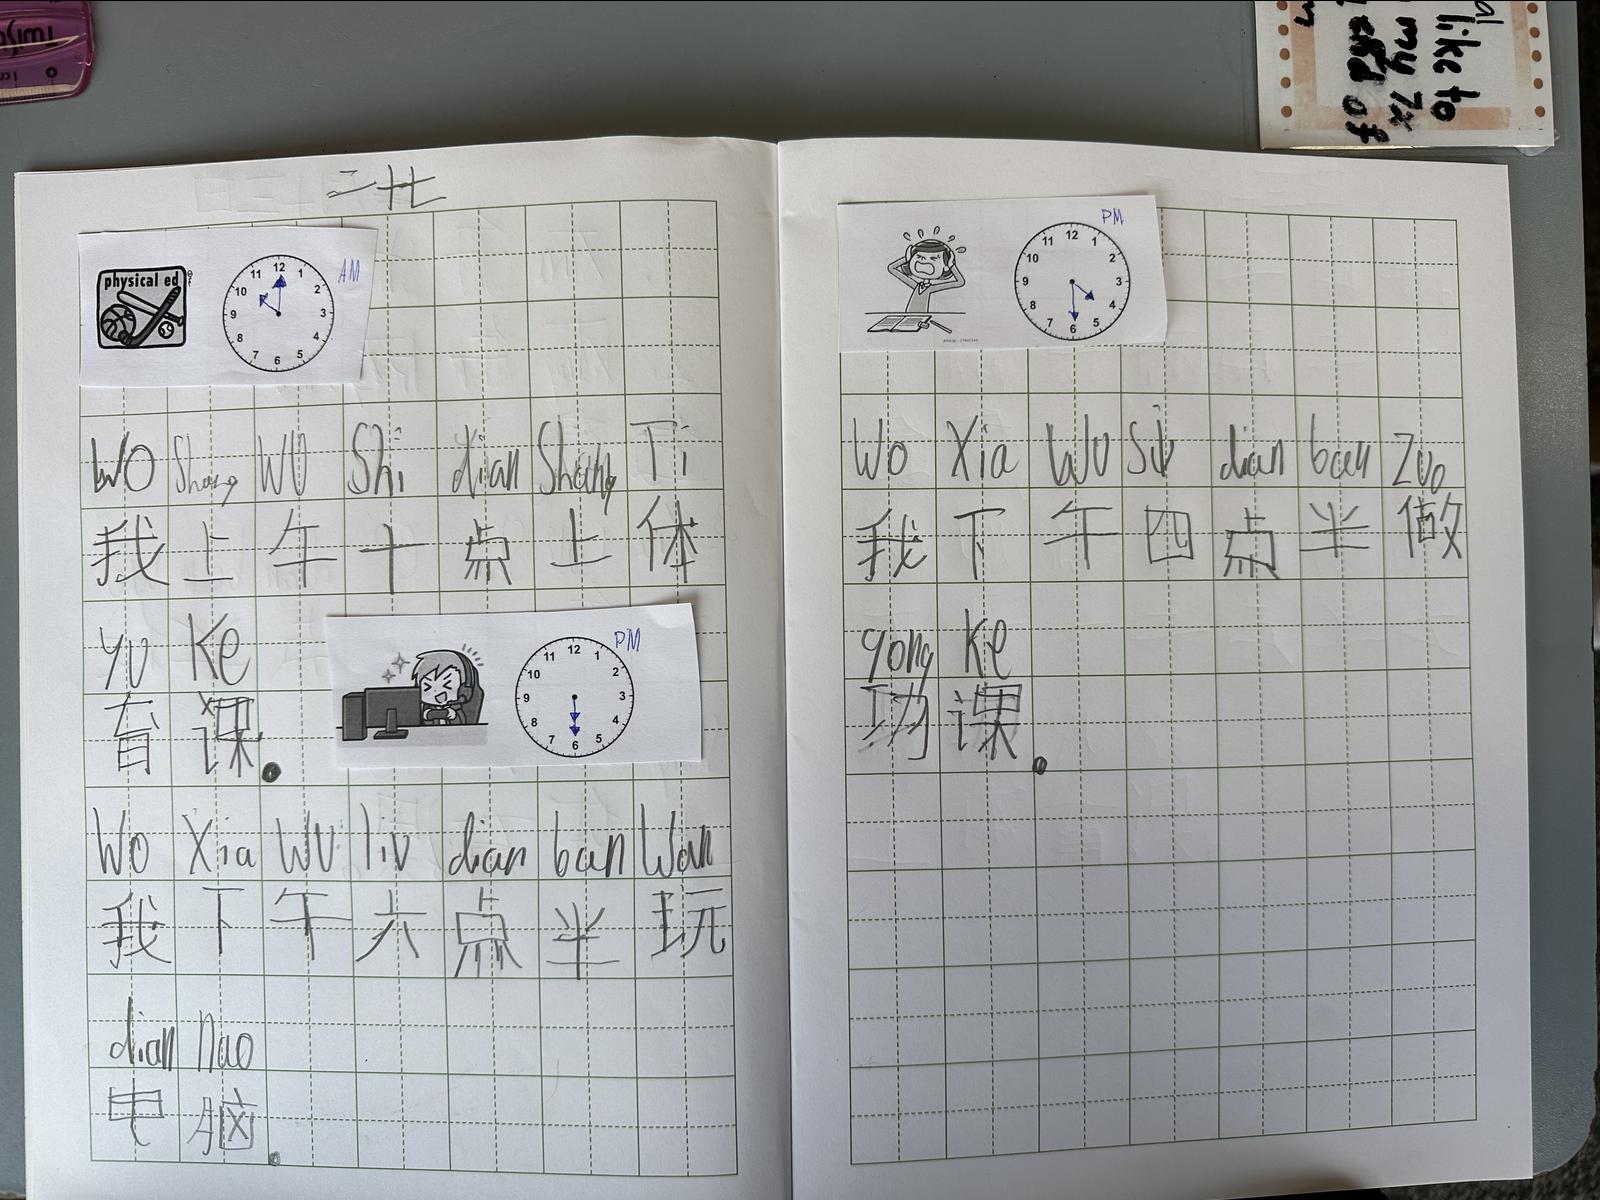 physical ed
12 1 2 3 4 5 6 7 8 9 10 11
AM
Wo Shang WU Shi dian Shang Ti
我上午十点上体
yu Ke
育课.
12 1 2 3 4 5 6 7 8 9 10 11
PM
Wo Xia WU liu dian ban Wan
我下午六点半玩
dian nao
电脑.
12 1 2 3 4 5 6 7 8 9 10 11
PM
Wo Xia WU Si dian ban Zuo
我下午四点半做
gong Ke
功课.
like to
my 7x
of